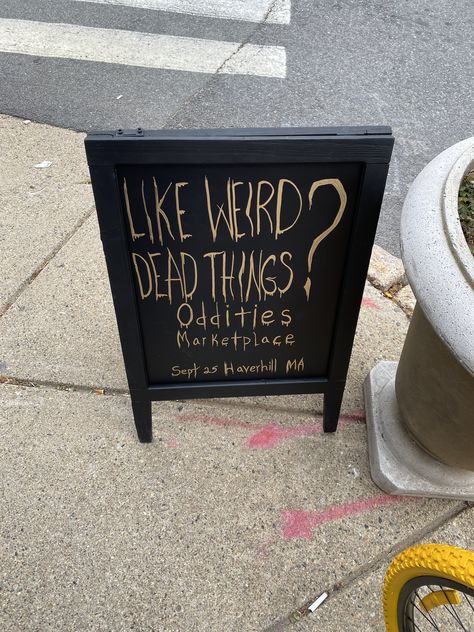 LIKE WEIRD
DEAD THINGS?
Oddities
Marketplace
Sept 25 Haverhill MA